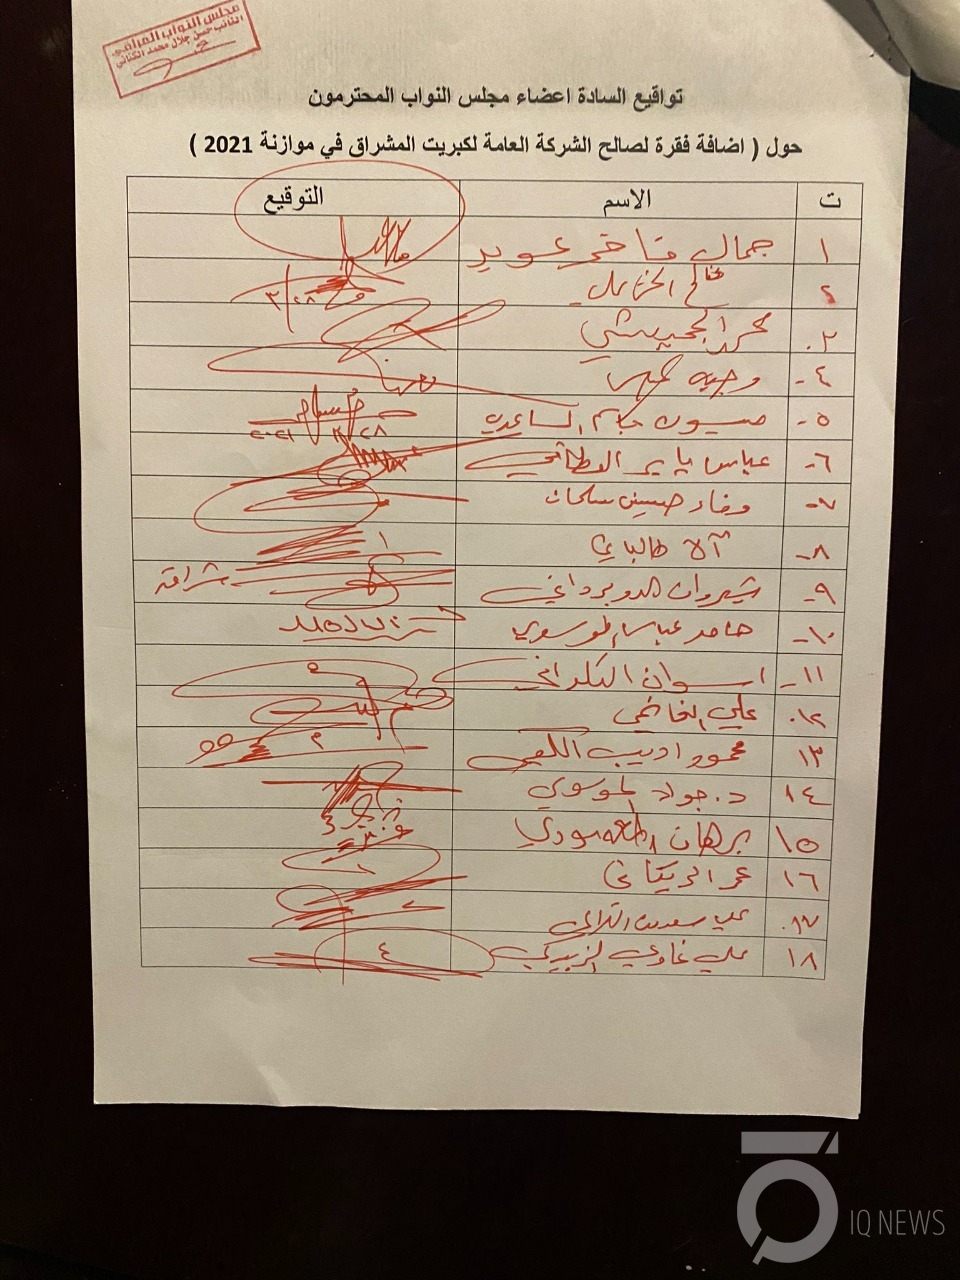 مجلس النواب العراقي
النائب حسن جلال محمد الكناني
تواقيع السادة اعضاء مجلس النواب المحترمون
حول ( اضافة فقرة لصالح الشركة العامة لكبريت المشراق في موازنة 2021 )
ت الاسم التوقيع
١ جمال فاخر عويد
٢ فالح الخزعلي ٣/٢٨
٣. محمد
٤- وجيه
٥- ميسون جاسم الساعدي ٢٨ ٢٠٢١
٦- عباس يابر العطافي
٧- وفاء حسين سلمان
٨- آلا طالباني
٩- شيروان الدوبرداني شراقة
١٠- حامد عباس الموسوي
١١- اسوان الكلداني
١٢. علي الغانمي
١٣ محمود اديب
١٤ د. جواد الموسوي
١٥ برهان المعموري
١٦ عمر
١٧. علي سعدون اللامي
١٨ علي غاوي الزبيدي
IQ NEWS